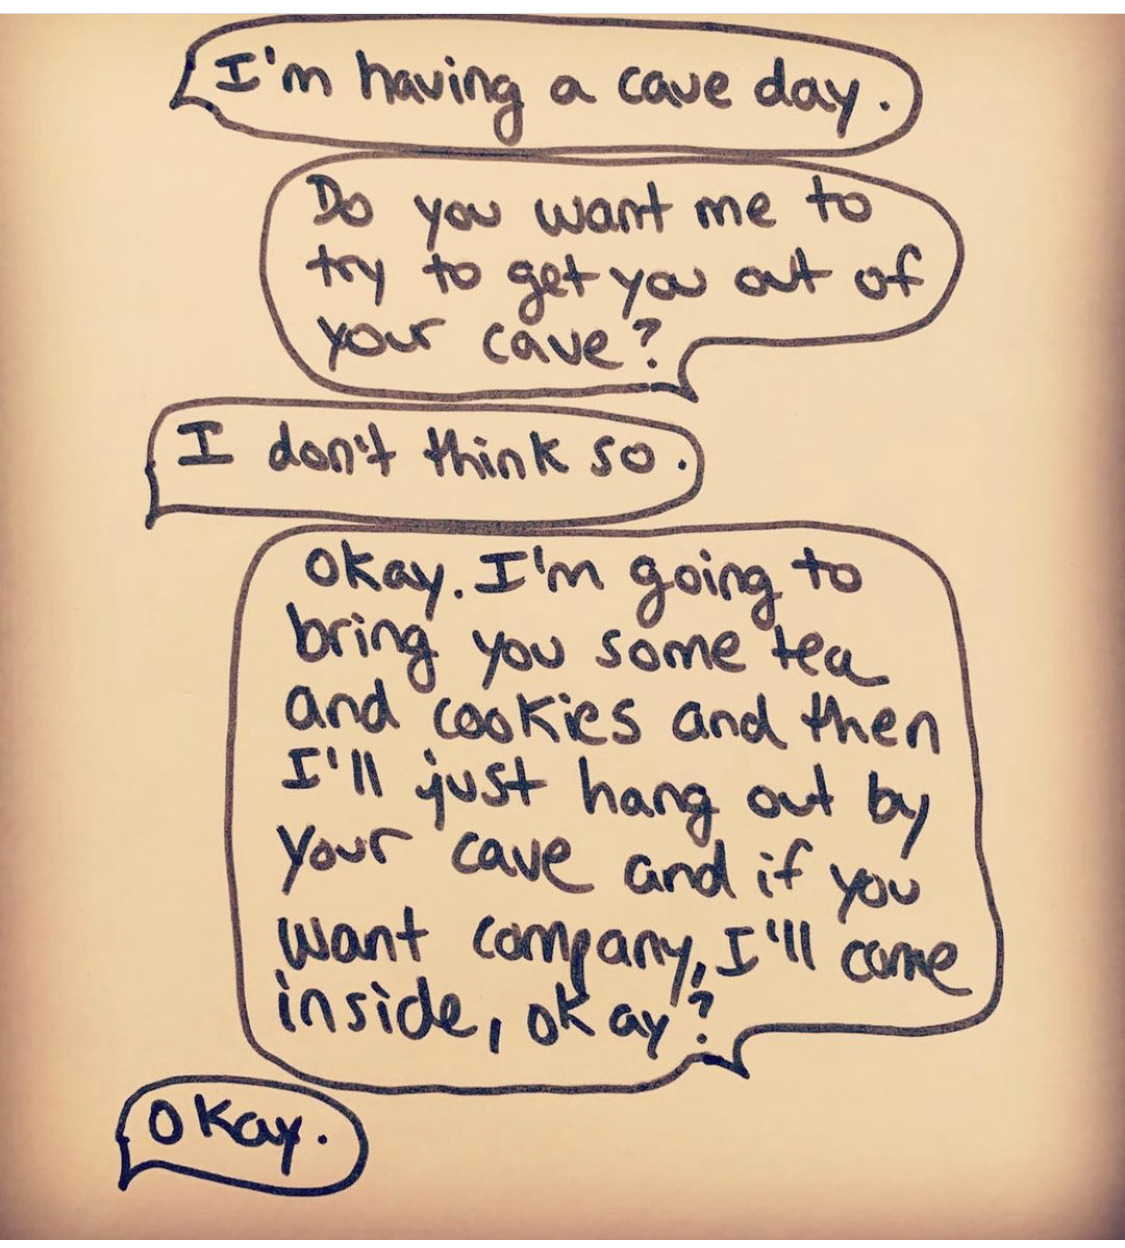 I'm having a cave day.
Do you want me to
try to get you out of
your cave?
I don't think so.
Okay. I'm going to
bring you some tea
and cookies and then
I'll just hang out by
your cave and if you
want company, I'll come
inside, okay?
Okay.